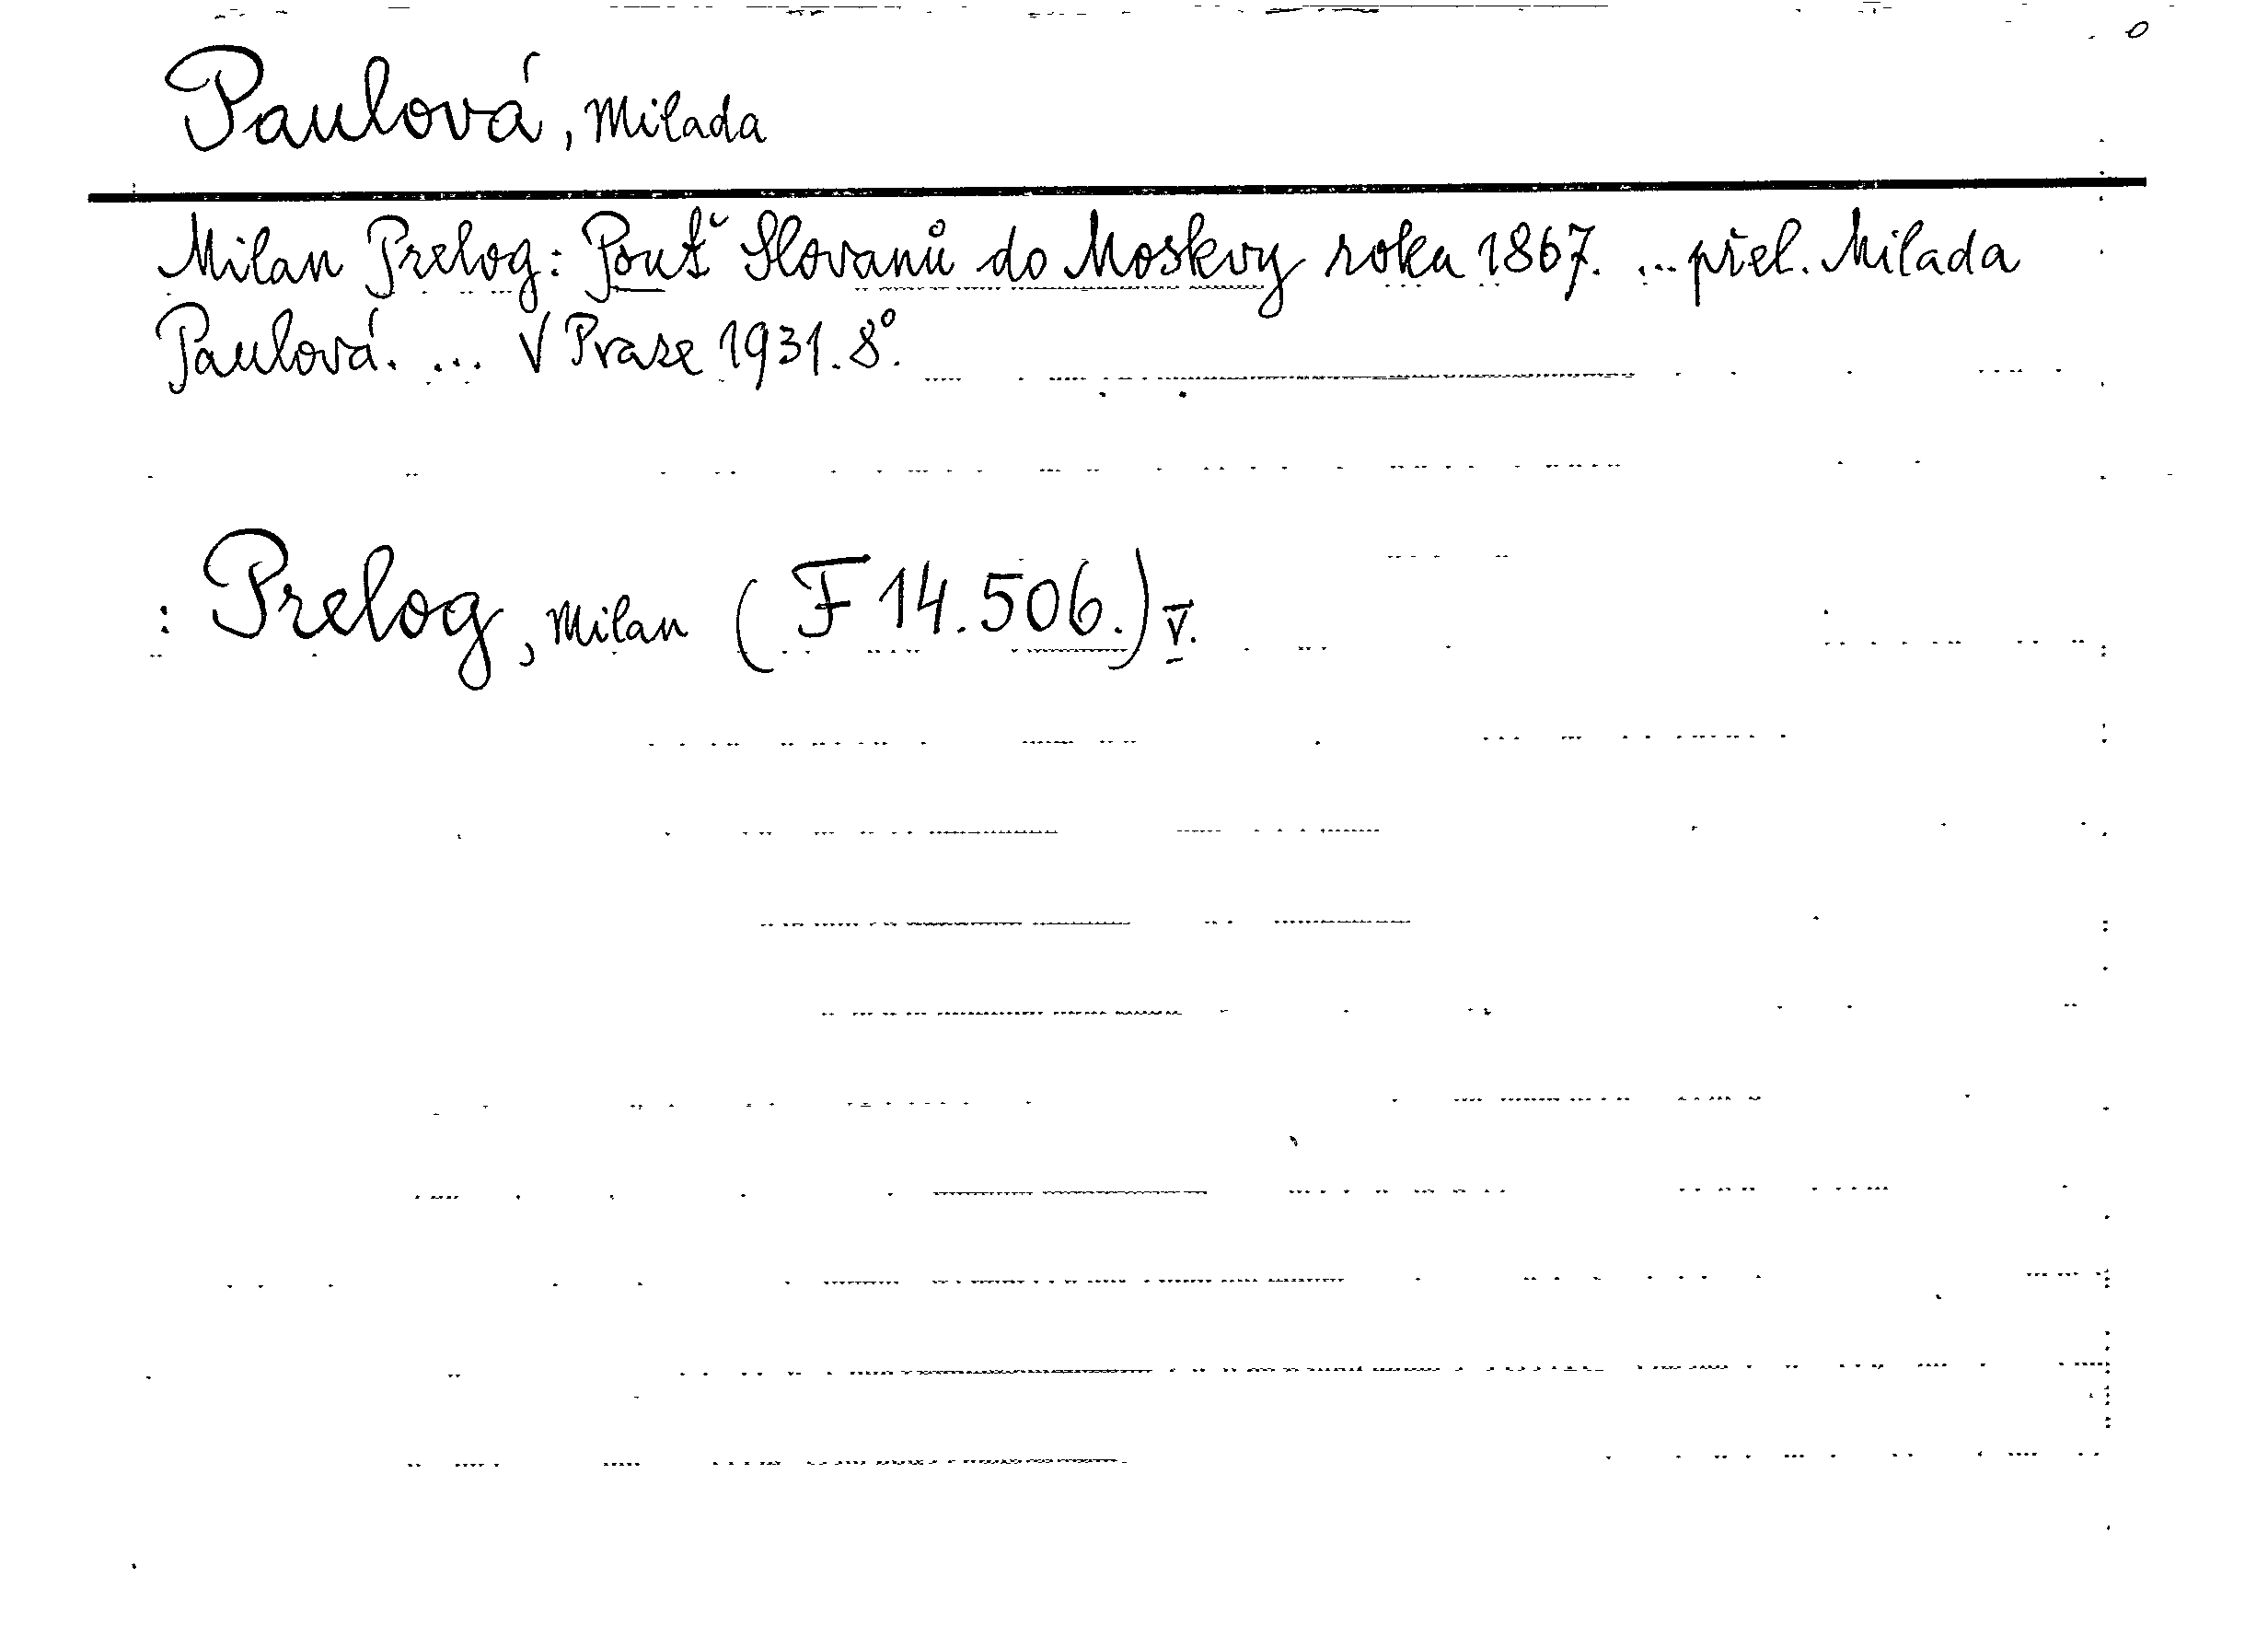 Paulová, Milada
Milan Prelog: Pouť Slovanů do Moskvy roku 1867. ... přel. Milada
Paulová. ... V Praze 1931. 8°.
: Prelog, Milan (F 14.506.) V.